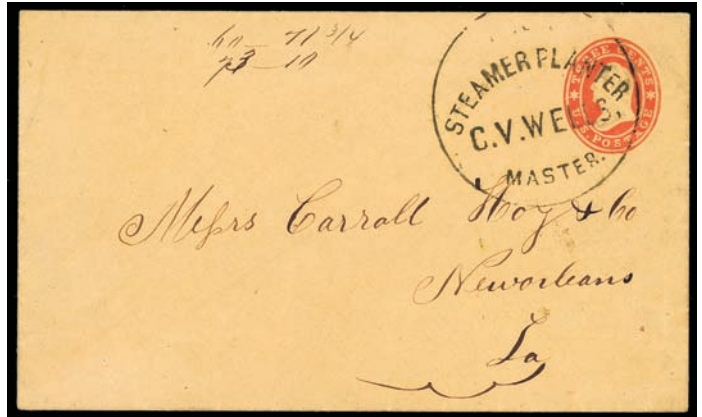 60 — 71 3/4
73 — 10
STEAMER PLANTER
C.V. WELLS
MASTER.
THREE CENTS
U.S. POSTAGE
Messrs Carroll Hoy & Co
Neworleans
La